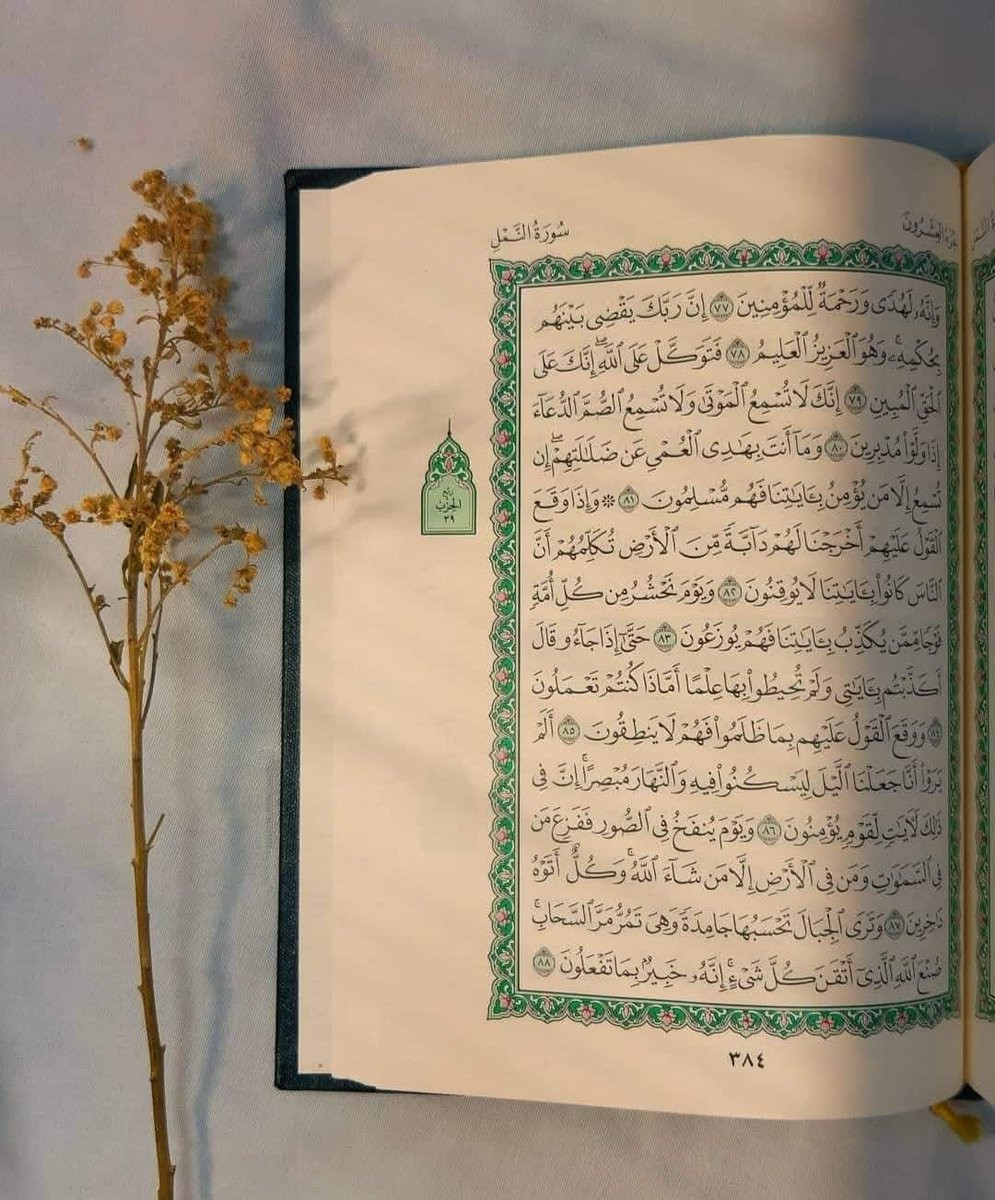 سُورَةُ النَّمْلِ
وَإِنَّهُۥ لَهُدًى وَرَحْمَةٌ لِّلْمُؤْمِنِينَ ٧٧ إِنَّ رَبَّكَ يَقْضِى بَيْنَهُم
بِحُكْمِهِۦۚ وَهُوَ ٱلْعَزِيزُ ٱلْعَلِيمُ ٧٨ فَتَوَكَّلْ عَلَى ٱللَّهِۖ إِنَّكَ عَلَى
ٱلْحَقِّ ٱلْمُبِينِ ٧٩ إِنَّكَ لَا تُسْمِعُ ٱلْمَوْتَىٰ وَلَا تُسْمِعُ ٱلصُّمَّ ٱلدُّعَآءَ
إِذَا وَلَّوْا۟ مُدْبِرِينَ ٨٠ وَمَآ أَنتَ بِهَـٰدِى ٱلْعُمْىِ عَن ضَلَـٰلَتِهِمْۖ إِن
تُسْمِعُ إِلَّا مَن يُؤْمِنُ بِـَٔايَـٰتِنَا فَهُم مُّسْلِمُونَ ٨١ ۞ وَإِذَا وَقَعَ
ٱلْقَوْلُ عَلَيْهِمْ أَخْرَجْنَا لَهُمْ دَآبَّةً مِّنَ ٱلْأَرْضِ تُكَلِّمُهُمْ أَنَّ
ٱلنَّاسَ كَانُوا۟ بِـَٔايَـٰتِنَا لَا يُوقِنُونَ ٨٢ وَيَوْمَ نَحْشُرُ مِن كُلِّ أُمَّةٍ
فَوْجًا مِّمَّن يُكَذِّبُ بِـَٔايَـٰتِنَا فَهُمْ يُوزَعُونَ ٨٣ حَتَّىٰٓ إِذَا جَآءُو قَالَ
أَكَذَّبْتُم بِـَٔايَـٰتِى وَلَمْ تُحِيطُوا۟ بِهَا عِلْمًا أَمَّاذَا كُنتُمْ تَعْمَلُونَ
٨٤ وَوَقَعَ ٱلْقَوْلُ عَلَيْهِم بِمَا ظَلَمُوا۟ فَهُمْ لَا يَنطِقُونَ ٨٥ أَلَمْ
يَرَوْا۟ أَنَّا جَعَلْنَا ٱلَّيْلَ لِيَسْكُنُوا۟ فِيهِ وَٱلنَّهَارَ مُبْصِرًاۚ إِنَّ فِى
ذَٰلِكَ لَـَٔايَـٰتٍ لِّقَوْمٍ يُؤْمِنُونَ ٨٦ وَيَوْمَ يُنفَخُ فِى ٱلصُّورِ فَفَزِعَ مَن
فِى ٱلسَّمَـٰوَٰتِ وَمَن فِى ٱلْأَرْضِ إِلَّا مَن شَآءَ ٱللَّهُۚ وَكُلٌّ أَتَوْهُ
دَٰخِرِينَ ٨٧ وَتَرَى ٱلْجِبَالَ تَحْسَبُهَا جَامِدَةً وَهِىَ تَمُرُّ مَرَّ ٱلسَّحَابِۚ
صُنْعَ ٱللَّهِ ٱلَّذِىٓ أَتْقَنَ كُلَّ شَىْءٍۚ إِنَّهُۥ خَبِيرٌۢ بِمَا تَفْعَلُونَ ٨٨
الحزب
٣٩
٣٨٤